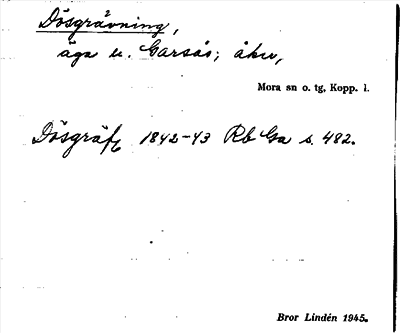 Dösgrävning,
äga u. Garsås; åker,
Mora sn o. tg, Kopp. l.
Dösgräfs 1842-43 Rb Ga s. 482.
Bror Lindén 1945.